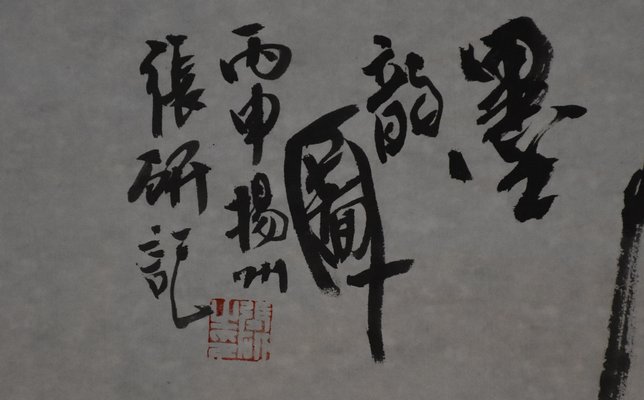 墨韵圖
丙申揚州
張研記